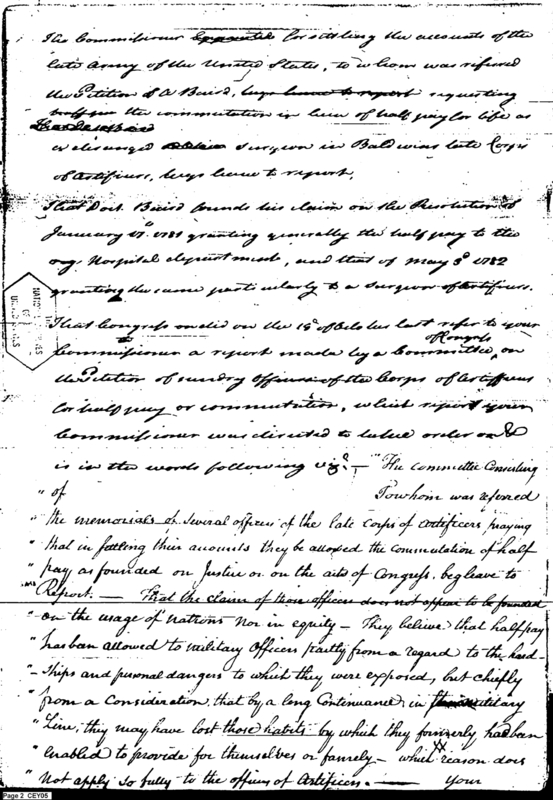 The Commissioner for settling the accounts of the
late Army of the United States, to whom was refered
the Petition of A Baird, begs leave to report requesting
half pay the commutation in lieu of half pay for life as
a deranged Surgeon in Baldwins late Corps
of Artificers, begs leave to report,
That Doct. Baird founds his claim on the Resolution of
January 17th. 1781 granting generally the half pay to the
Hospital department, and that of May 3d 1782
granting the same particularly to a Surgeon of Artificers.
That Congress on the of October last refer to your
Commissioner a report made by a Committee of Congress, on
the Petition of sundry Officers of the Corps of Artificers
for half pay or commutation, which report your
Commissioner was directed to take order on &
is in the words following viz. — "The committee Consisting
" of To whom was refered
" the memorials of Several officers of the late Corps of Artificers praying
" that in settling their accounts they be allowed the commutation of half
" pay as founded on Justice or on the acts of Congress, beg leave to
Report. — That the claim of those officers does not appear to be founded
" on the usage of Nations nor in equity — They believe that half pay
" has been allowed to military Officers partly from a regard to the hard-
" -ships and personal dangers to which they were exposed, but chiefly
" from a Consideration, that by a long Continuance in military
" Line, they may have lost those habits by which they formerly had been
" enabled to provide for themselves or family — which reason does
" Not apply so fully to the officers of Artificers. — your
NATIONAL ARCHIVES
Page 2 CEY05